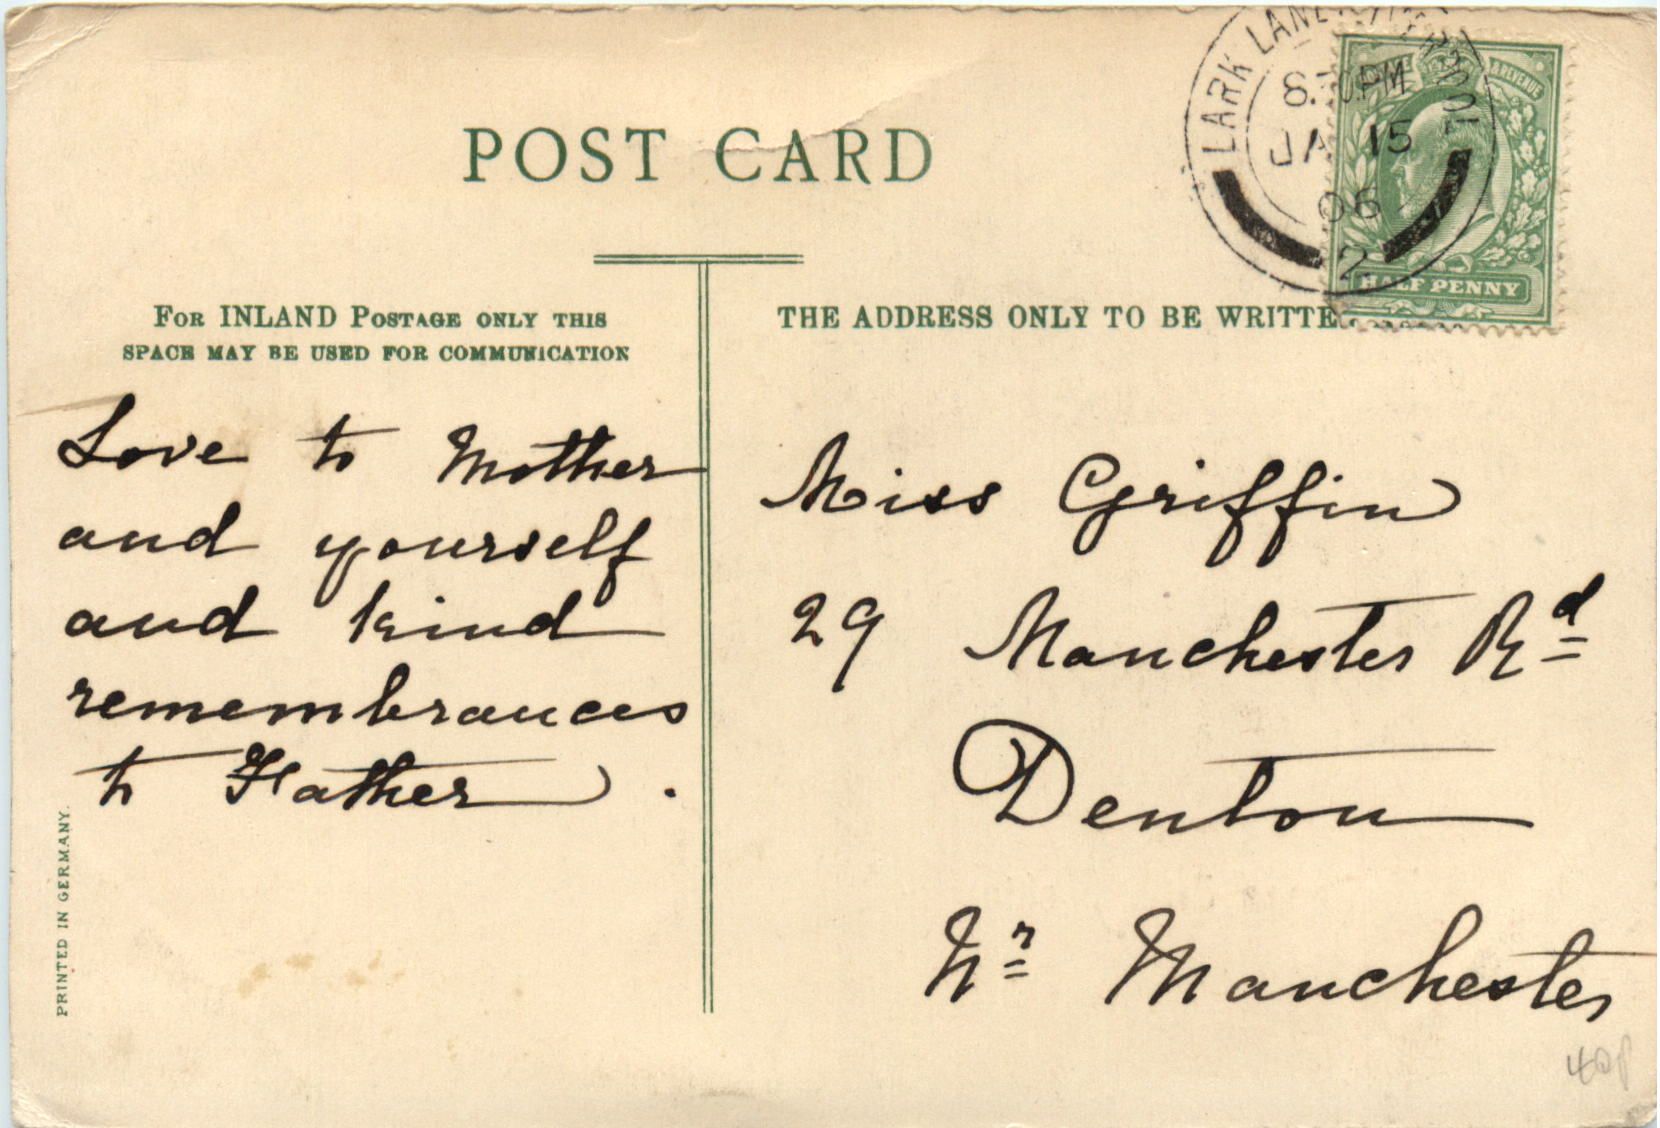 POST CARD
LARK LANE LIVERPOOL
8.30PM
JA 15
06
2
POSTAGE & REVENUE
HALF PENNY
FOR INLAND POSTAGE ONLY THIS
SPACE MAY BE USED FOR COMMUNICATION
THE ADDRESS ONLY TO BE WRITTE
Love to Mother
and yourself
and kind
remembrances
to Father.
Miss Griffin
29 Manchester Rd
Denton
Nr Manchester
PRINTED IN GERMANY.
40p